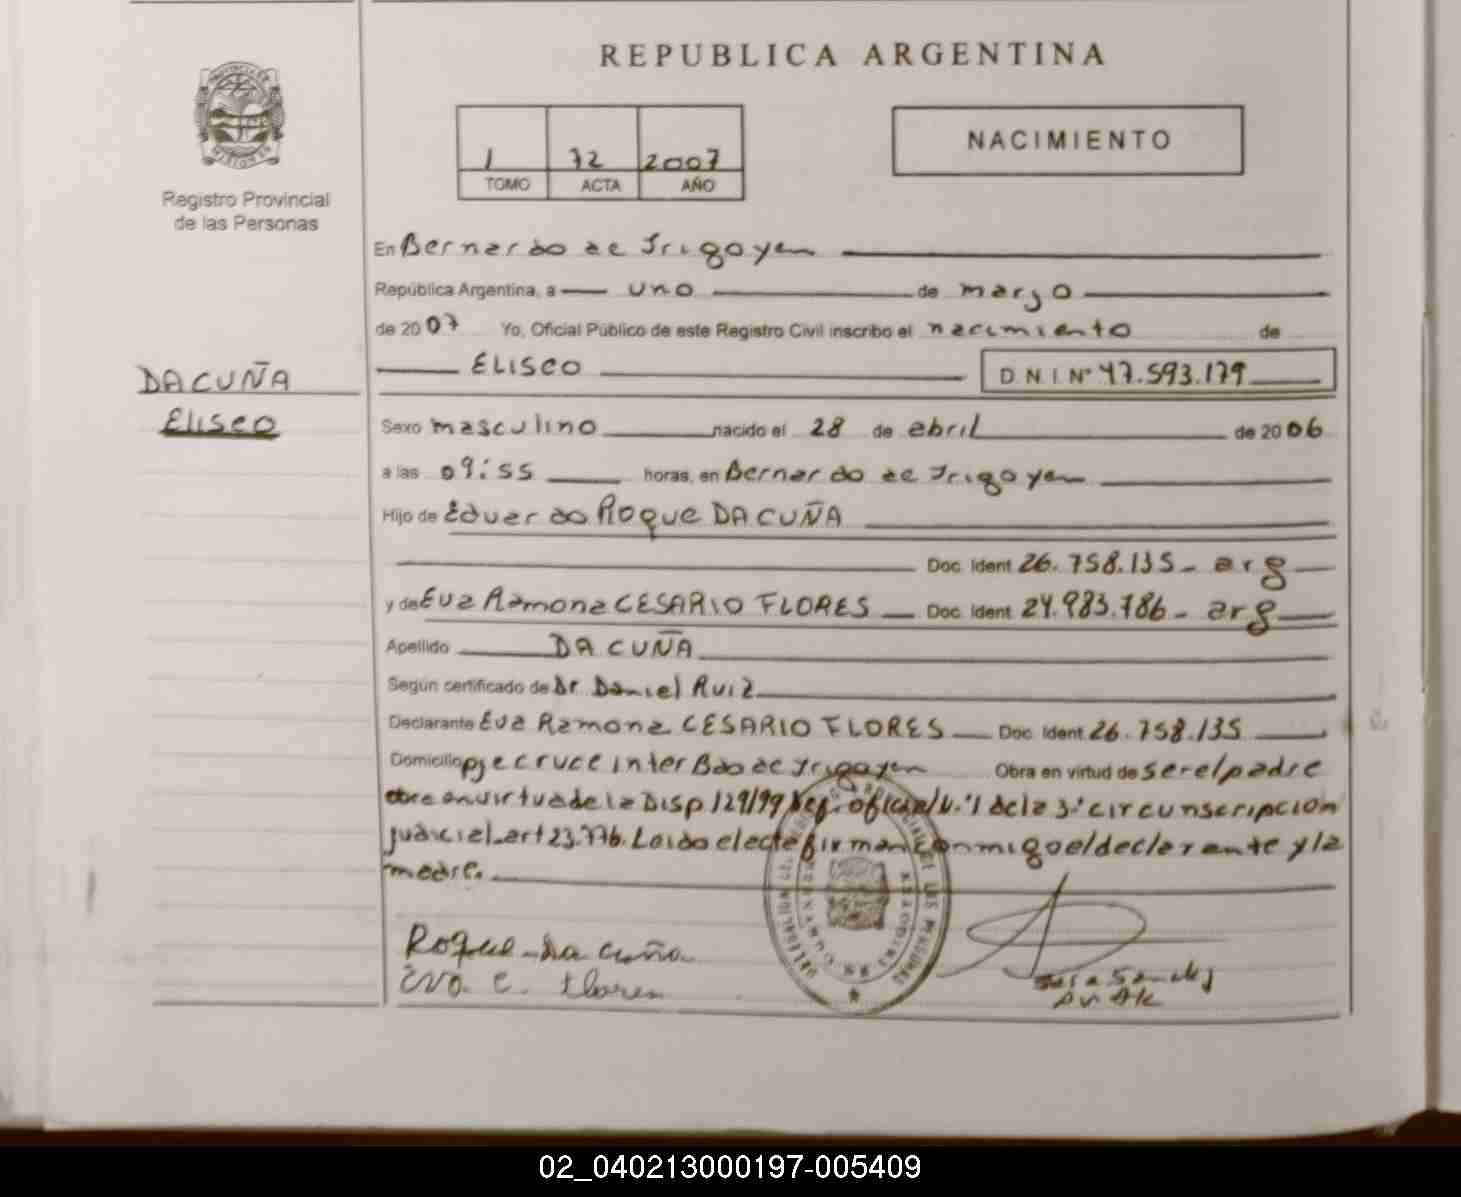 REPUBLICA ARGENTINA
NACIMIENTO
1 72 2007
TOMO ACTA AÑO
Registro Provincial
de las Personas
En Bernardo de Irigoyen
República Argentina, a uno de marzo
de 2007 Yo, Oficial Público de este Registro Civil inscribo el nacimiento de
ELISEO D.N.I. Nº 47.593.179
DA CUÑA
Eliseo
Sexo masculino nacido el 28 de abril de 2006
a las 09:55 horas, en Bernardo de Irigoyen
Hijo de Eduardo Roque DA CUÑA
Doc. Ident. 26.758.135 - arg
y de Eva Ramona CESARIO FLORES Doc. Ident. 24.983.786 - arg
Apellido DA CUÑA
Según certificado de Dr. Daniel Ruiz
Declarante Eva Ramona CESARIO FLORES Doc. Ident. 26.758.135
Domicilio pje cruce inter Bdo de Irigoyen Obra en virtud de ser el padre
obra en virtud de la Disp 129/99 Def. oficial N.º 1 de la 3º circunscripción
judicial art 23.776. Leido el acta firman conmigo el declarante y la
madre.
Roque Da Cuña
Eva. C. Flores
02_040213000197-005409